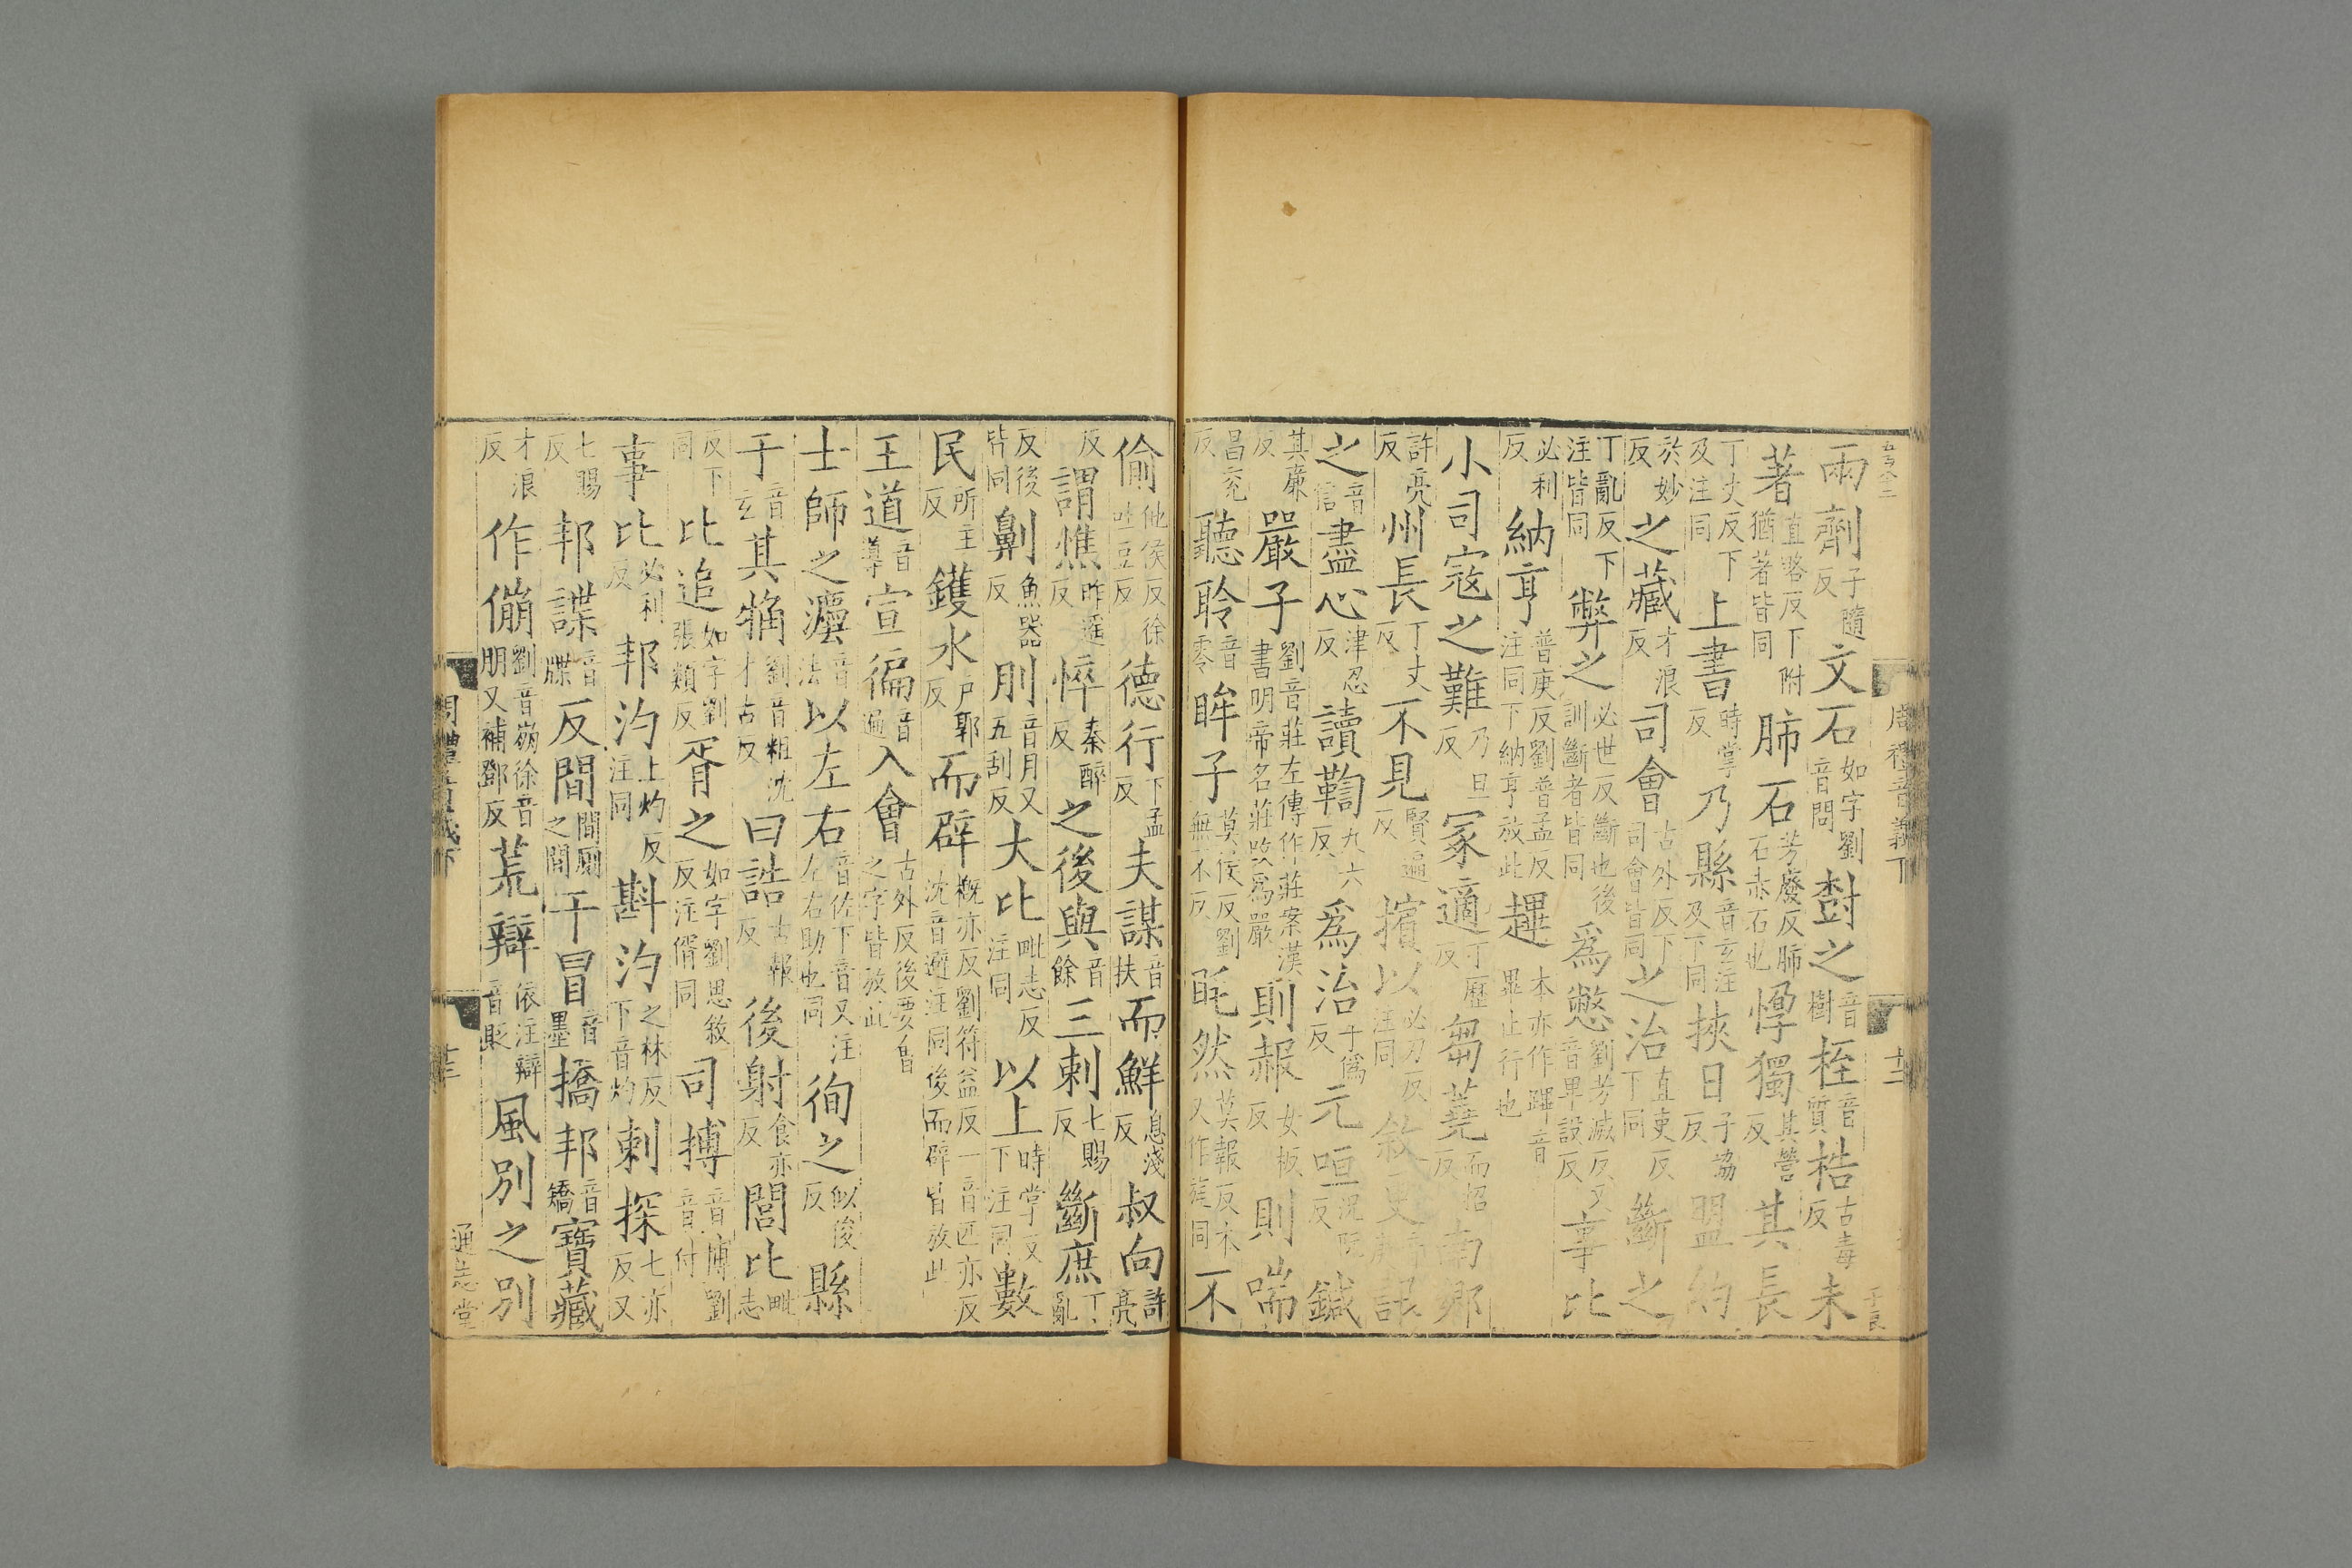 兩劑子隨反文石如字劉音問樹之音樹桎音質梏古毒反未
著直略反下附猶著皆同肺石芳廢反肺石赤石也惸獨其營反其長
丁丈反下及注同上書時掌反乃縣音玄注及下同挾日子協反盟約
於妙反之藏才浪反司會古外反下司會皆同之治直吏反下同斷之
丁亂反下注皆同弊之必世反斷也後訓斷者皆同爲憋劉芳滅反又音畢設反事比
必利反納亨普庚反劉普孟反注同下納亨放此趩本亦作蹕音畢止行也
小司寇之難乃旦反冢適丁歷反芻蕘而招反南鄉
許亮反州長丁丈反不見賢遍反擯以必刃反注同敘
之音信盡心津忍反讀鞫九六反爲治于僞反元咺況阮反鍼
其廉反嚴子劉音莊左傳作莊案漢書明帝名莊改爲嚴則赧女板反則喘
昌兖反聽聆音零眸子莫侯反劉無不反眊然莫報反本又作旄同不
偷他侯反徐吐豆反德行下孟反夫謀音扶而鮮息淺反叔向許亮
反謂憔昨遥反悴秦醉反之後與音餘三刺七賜反斷庶丁亂
反後皆同劓魚器反刖音月又五刮反大比毗志反注同以上時掌反下注同數
民所主反鑊水户郭反而辟概亦反劉符益反一音匹亦反沈音避注同後而辟皆放此
王道音導宣徧音遍入會古外反後要會之字皆放此
士師之灋音法以左右音佐下音又注左右助也同徇之似俊反縣
于音玄其犕劉音粗沈才古反曰誥古報反後射食亦反閭比毗志
反下同比追如字劉張類反胥之如字劉思敘反注偦同司搏音博劉音付
事比必利反邦汋上灼反注同斟汋之林反下音灼刺探七亦反又
七賜反邦諜音牒反間間厠之間干冒音墨撟邦音矯寶藏
才浪反作傰劉音崩徐音朋又補鄧反荒辯依注辯音貶風别之别
周禮音義下
十二
周禮音義下
十三
通志堂